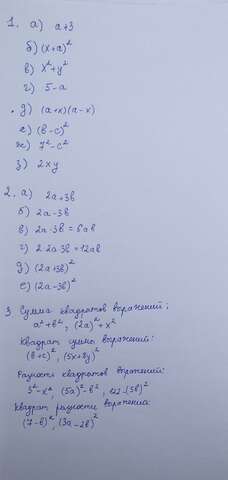 1. а) a+3
б) (x+a)²
в) x²+y²
г) 5-a
д) (a+x)(a-x)
е) (b-c)²
ж) 7²-c²
з) 2xy
2. а) 2a+3b
б) 2a-3b
в) 2a·3b=6ab
г) 2·2a·3b=12ab
д) (2a+3b)²
е) (2a-3b)²
3. Сумма квадратов выражений:
a²+b², (2a)²+x²
Квадрат суммы выражений:
(b+c)², (5x+8y)²
Разность квадратов выражений:
3²-x², (5a)²-b², 122-(5b)²
Квадрат разности выражений:
(7-b)², (3a-2b)²